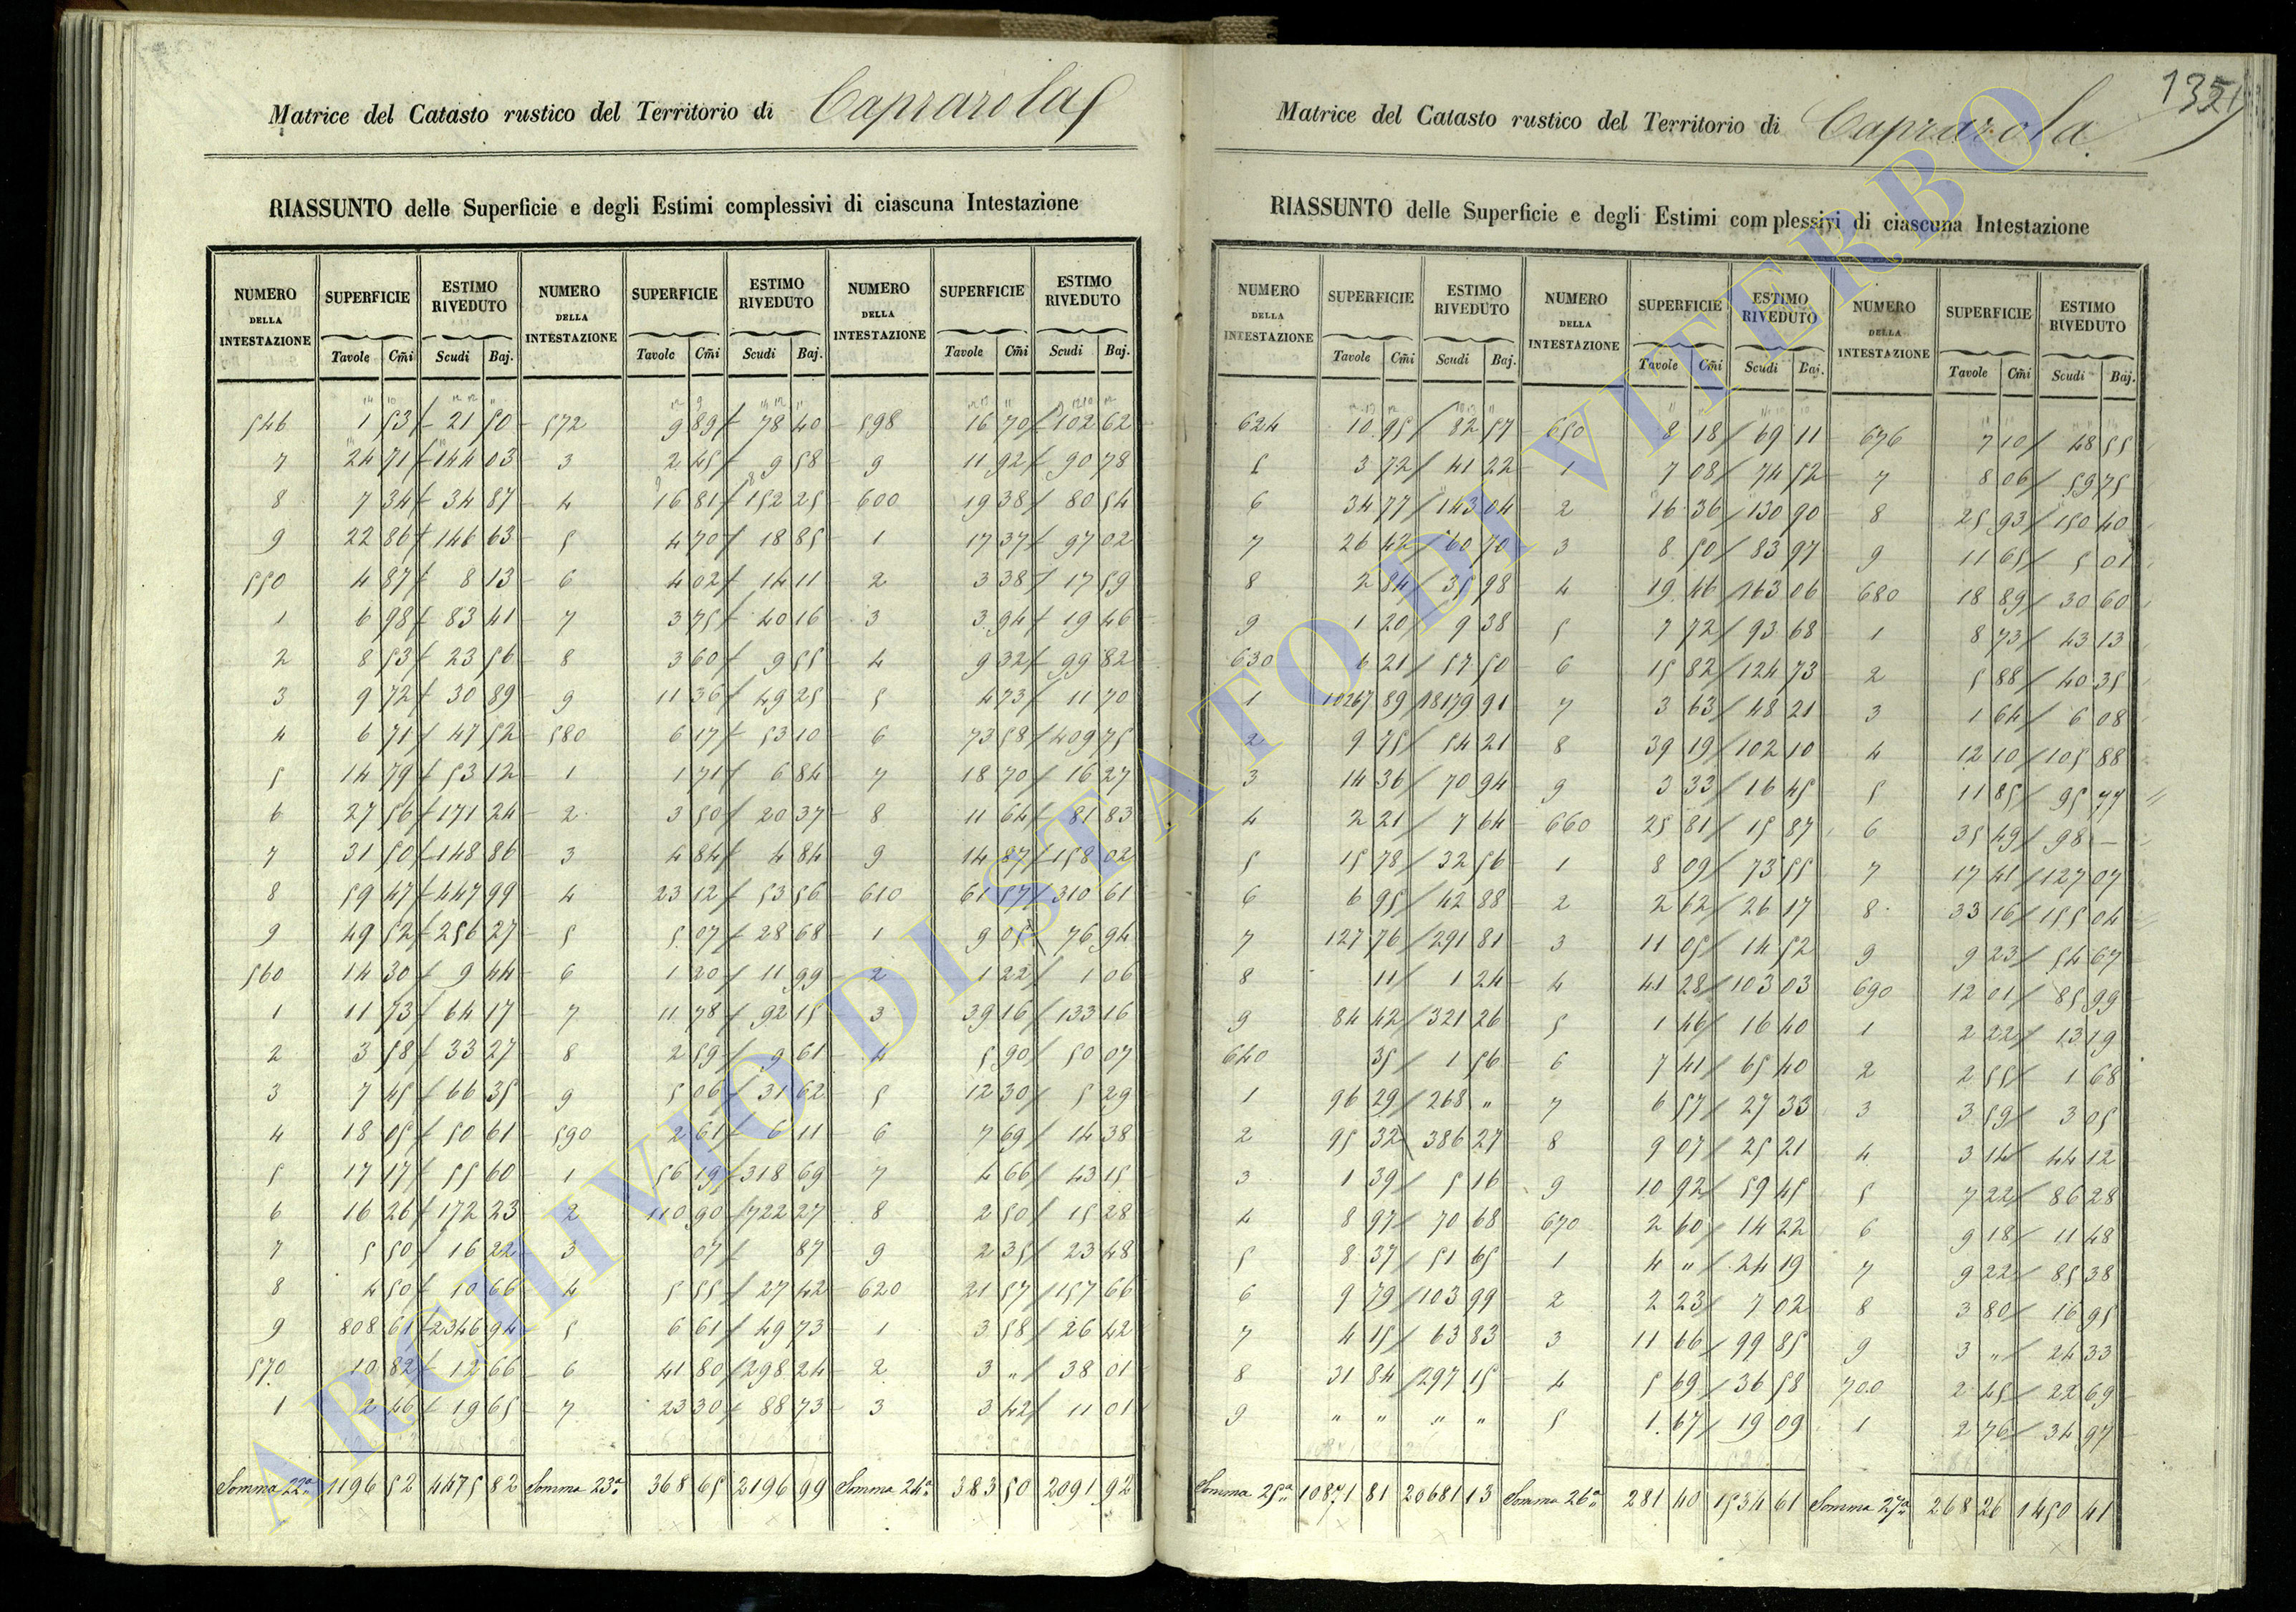 Matrice del Catasto rustico del Territorio di Caprarola
RIASSUNTO delle Superficie e degli Estimi complessivi di ciascuna Intestazione
NUMERO DELLA INTESTAZIONE SUPERFICIE ESTIMO RIVEDUTO NUMERO DELLA INTESTAZIONE SUPERFICIE ESTIMO RIVEDUTO NUMERO DELLA INTESTAZIONE SUPERFICIE ESTIMO RIVEDUTO
Tavole Cm̃i Scudi Baj. Tavole Cm̃i Scudi Baj. Tavole Cm̃i Scudi Baj.
546 1 53 21 50 572 9 89 78 40 598 16 70 102 62
7 24 71 144 03 3 2 45 9 58 9 11 92 90 78
8 7 34 34 87 4 16 81 152 25 600 19 38 80 54
9 22 86 146 63 5 4 70 18 85 1 17 37 97 02
550 4 87 8 13 6 4 02 14 11 2 3 38 17 59
1 6 98 83 41 7 3 75 40 16 3 3 94 19 46
2 8 53 23 56 8 3 60 9 55 4 9 32 99 82
3 9 72 30 89 9 11 36 49 25 5 4 73 11 70
4 6 71 47 52 580 6 17 53 10 6 73 58 409 75
5 14 79 53 12 1 1 71 6 84 7 18 70 16 27
6 27 56 171 24 2 3 50 20 37 8 11 64 81 83
7 31 50 148 86 3 4 84 4 84 9 14 87 158 02
8 59 47 447 99 4 23 12 53 56 610 61 57 310 61
9 49 52 256 27 5 5 07 28 68 1 9 05 76 94
560 14 30 9 44 6 1 20 11 99 2 1 22 1 06
1 11 73 64 17 7 11 78 92 15 3 39 16 133 16
2 3 58 33 27 8 2 59 9 61 4 5 90 50 07
3 7 45 66 35 9 5 06 31 62 5 12 30 5 29
4 18 05 50 61 590 2 61 6 11 6 7 69 14 38
5 17 17 55 60 1 56 19 318 69 7 4 66 43 15
6 16 26 172 23 2 110 90 722 27 8 2 50 15 28
7 5 50 16 22 3 07 87 9 2 35 23 48
8 4 50 10 66 4 5 55 27 42 620 21 57 157 66
9 808 61 2346 94 5 6 61 49 73 1 3 58 26 42
570 10 82 12 66 6 41 80 298 24 2 3 " 38 01
1 2 46 19 65 7 23 30 88 73 3 3 42 11 01
Somma 22a 1196 52 4475 82 Somma 23a 368 65 2196 99 Somma 24a 383 50 2091 92
Matrice del Catasto rustico del Territorio di Caprarola
RIASSUNTO delle Superficie e degli Estimi complessivi di ciascuna Intestazione
NUMERO DELLA INTESTAZIONE SUPERFICIE ESTIMO RIVEDUTO NUMERO DELLA INTESTAZIONE SUPERFICIE ESTIMO RIVEDUTO NUMERO DELLA INTESTAZIONE SUPERFICIE ESTIMO RIVEDUTO
Tavole Cm̃i Scudi Baj. Tavole Cm̃i Scudi Baj. Tavole Cm̃i Scudi Baj.
624 10 95 82 57 650 8 18 69 11 676 7 10 48 55
5 3 72 41 22 1 7 08 74 52 7 8 06 59 75
6 34 77 143 04 2 16 36 130 90 8 25 93 150 40
7 26 42 60 70 3 8 50 83 97 9 11 65 5 01
8 2 84 35 98 4 19 46 163 06 680 18 89 30 60
9 1 20 9 38 5 7 72 93 68 1 8 73 43 13
630 6 21 57 50 6 15 82 124 73 2 5 88 40 35
1 10267 89 18179 91 7 3 63 48 21 3 1 64 6 08
2 9 75 54 21 8 39 19 102 10 4 12 10 105 88
3 14 36 70 94 9 3 33 16 45 5 11 85 95 77
4 2 21 7 64 660 25 81 15 87 6 35 49 98 —
5 15 78 32 56 1 8 09 73 55 7 17 41 127 07
6 6 95 42 88 2 2 62 26 17 8 33 16 155 04
7 127 76 291 81 3 11 05 14 52 9 9 23 54 67
8 11 1 24 4 41 28 103 03 690 12 01 85 99
9 84 42 321 26 5 1 46 16 40 1 2 22 13 19
640 35 1 56 6 7 41 65 40 2 2 55 1 68
1 96 29 268 " 7 6 57 27 33 3 3 59 3 05
2 95 32 386 27 8 9 07 25 21 4 3 14 44 12
3 1 39 5 16 9 10 92 59 45 5 7 22 86 28
4 8 97 70 68 670 2 60 14 22 6 9 18 11 48
5 8 37 51 65 1 4 " 24 19 7 9 22 85 38
6 9 79 103 99 2 2 23 7 02 8 3 80 16 95
7 4 15 63 83 3 11 66 99 85 9 3 " 24 33
8 31 84 297 15 4 5 69 36 58 700 2 45 22 69
9 " " " " 5 1 67 19 09 1 2 76 34 97
Somma 25a 10871 81 20681 13 Somma 26a 281 40 1534 61 Somma 27a 268 26 1450 41
ARCHIVIO DI STATO DI VITERBO